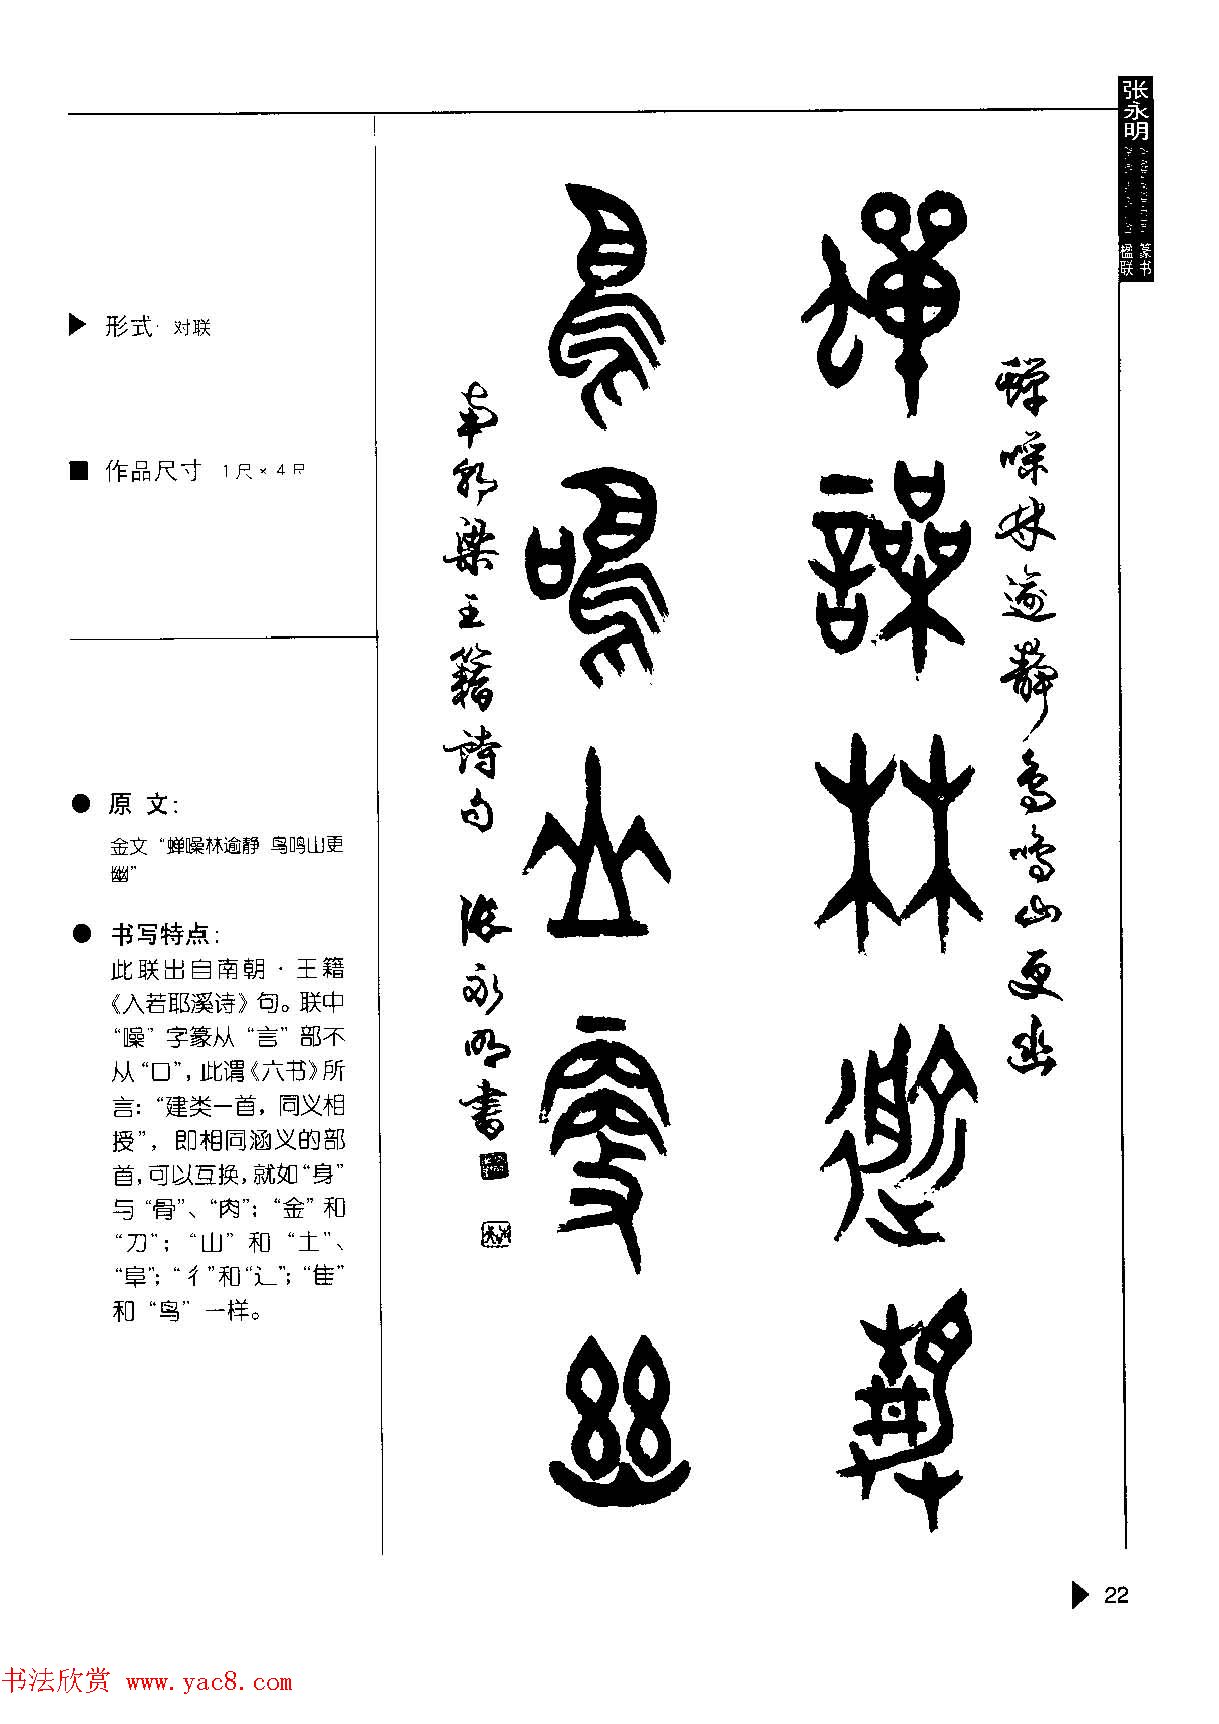 张永明
篆书
楹联
形式·对联
作品尺寸 1尺×4尺
原文：
金文“蝉噪林逾静 鸟鸣山更
幽”
书写特点：
此联出自南朝·王籍
《入若耶溪诗》句。联中
“噪”字篆从“言”部不
从“口”，此谓《六书》所
言：“建类一首，同义相
授”，即相同涵义的部
首，可以互换，就如“身”
与“骨”、“肉”；“金”和
“刀”；“山”和“土”、
“阜”；“彳”和“辶”；“隹”
和“鸟”一样。
蟬噪林逾静鸟鸣山更幽
蟬譟林逾静
鳥鳴山更幽
南朝梁王籍詩句 张永明書
22
书法欣赏 www.yac8.com